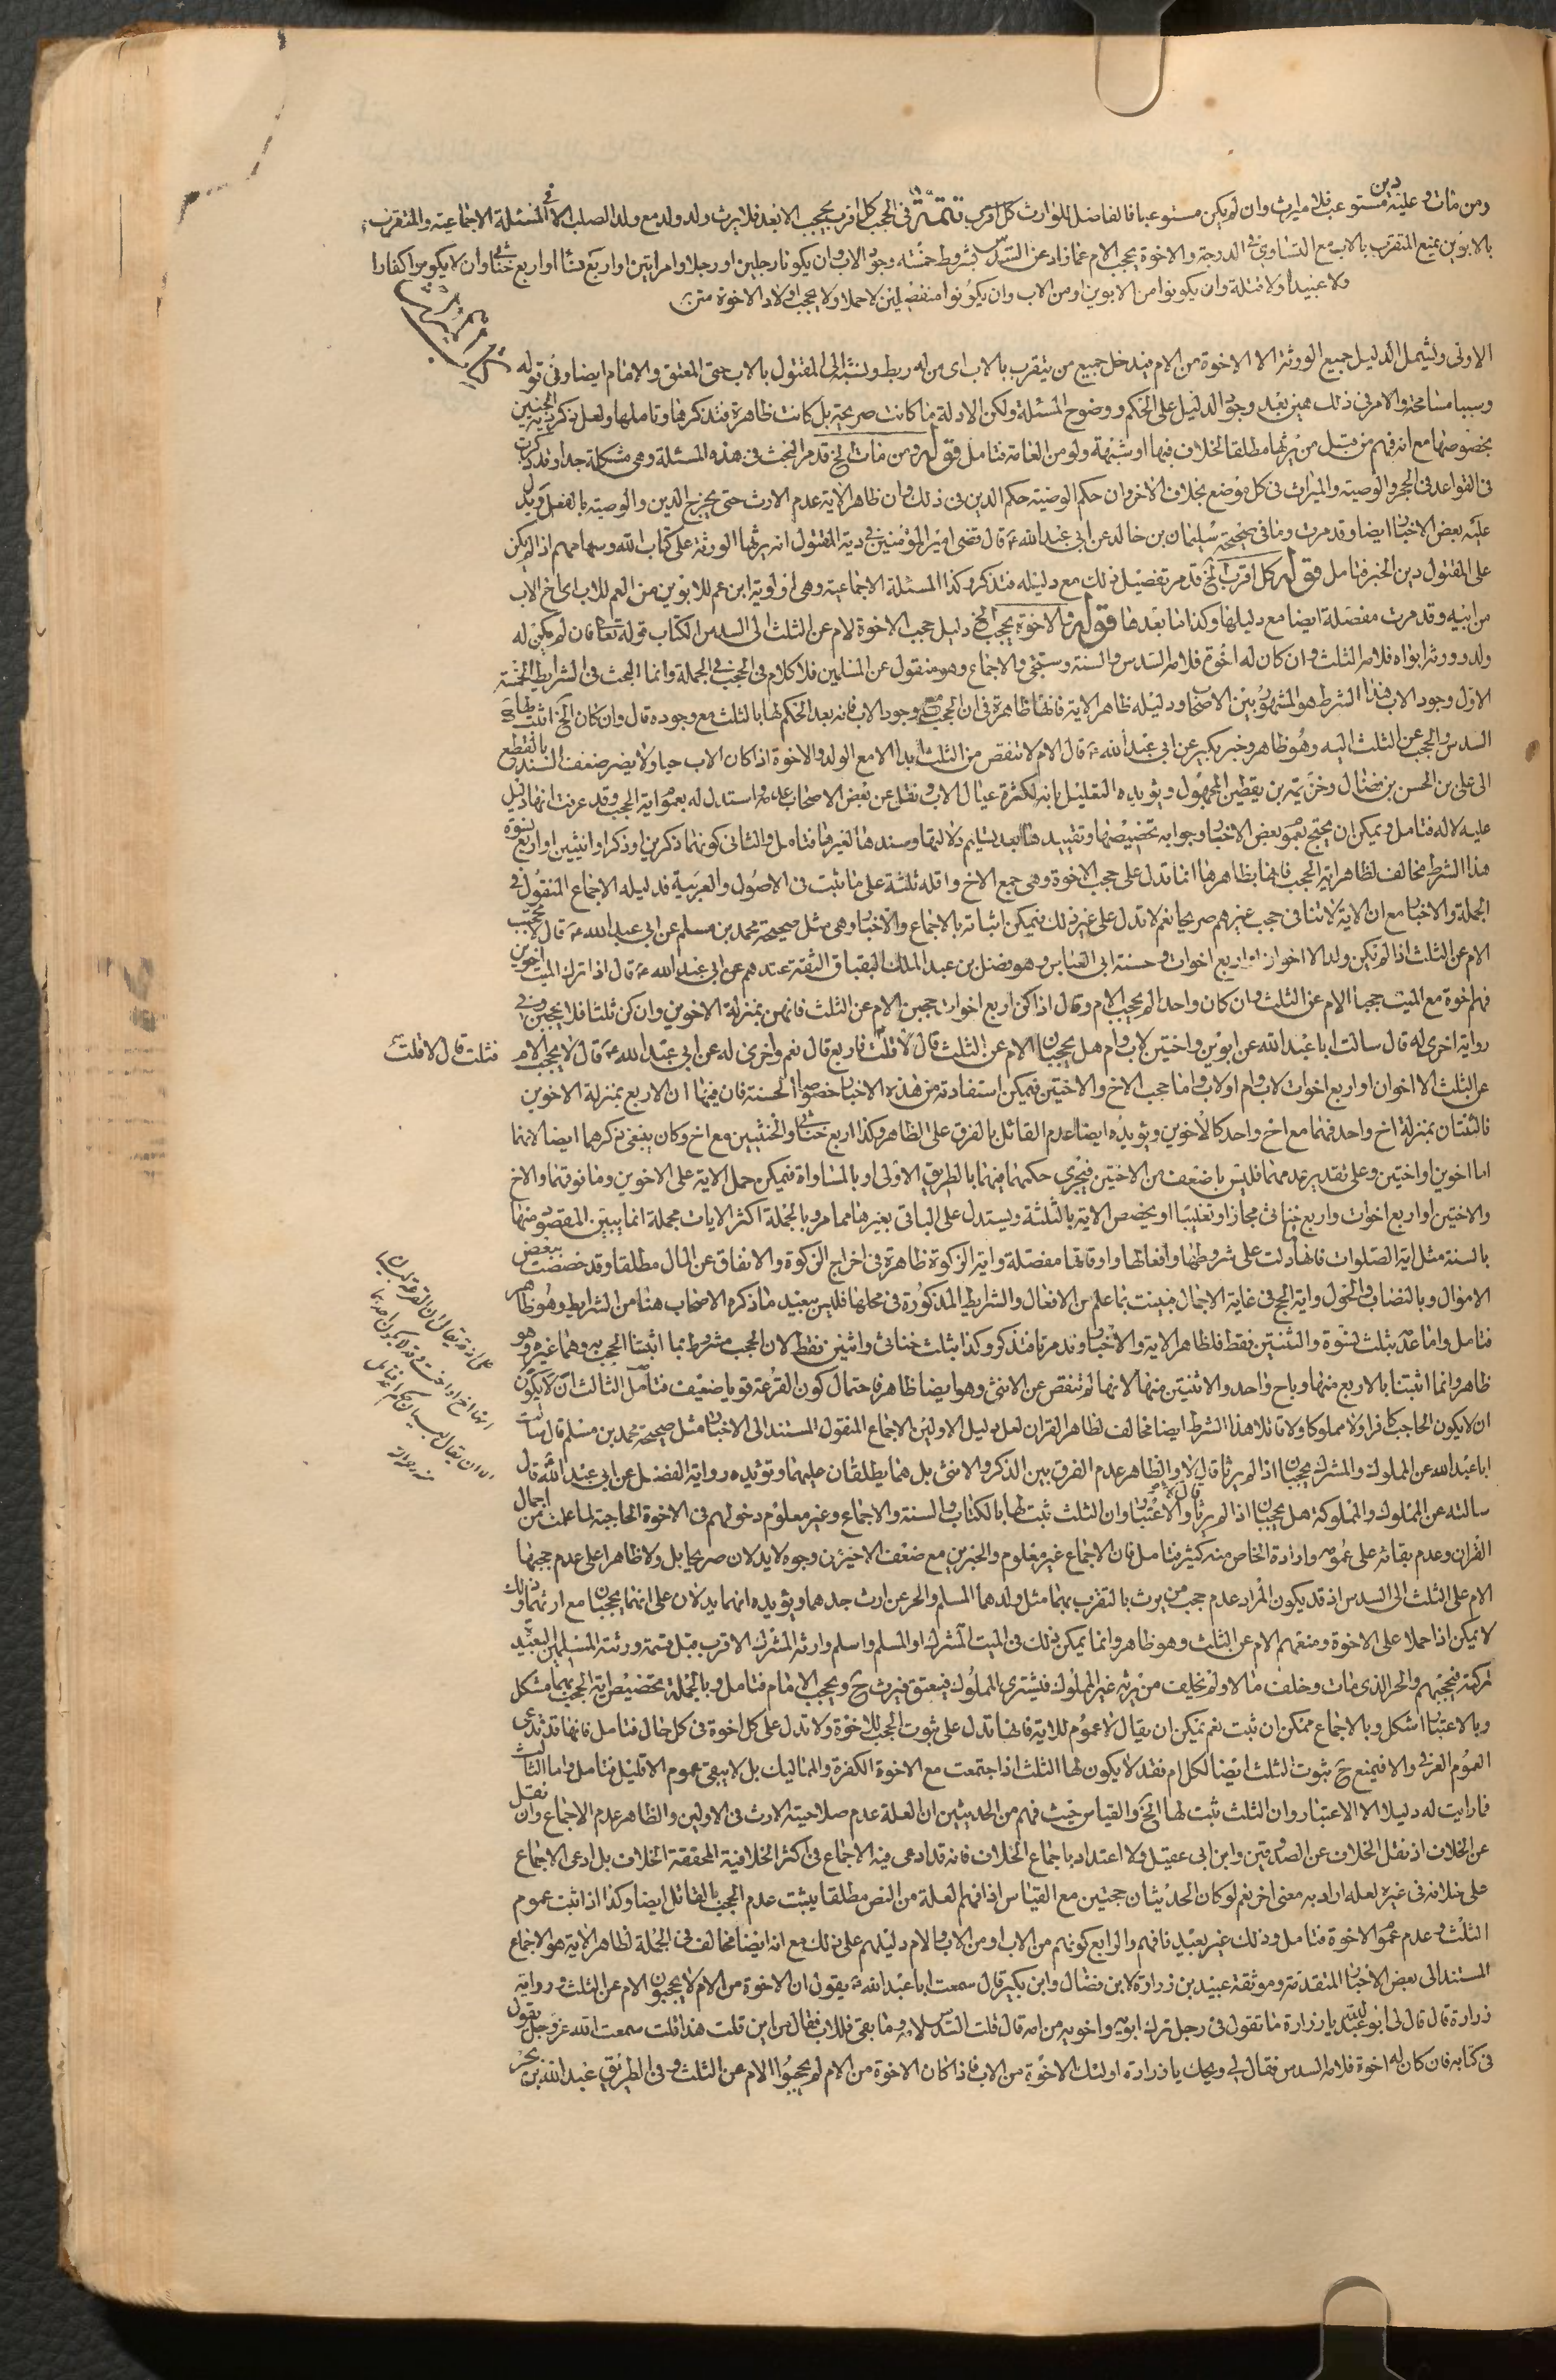 ومن مات وعليه دين مستوعب فلا ميراث وان لم يكن مستوعبا فالفاضل للوارث كل اقرب تتمة في الحجب كل اقرب يحجب الابعد فلا يرث ولد ولد مع ولد الصلب الا في المسئلة الاجماعية والمتقرب
بالابوين يمنع المتقرب بالاب مع التساوي في الدرجة والاخوة يحجب الام عما زاد عن السدس بشروط خمسة وجود الاب وان يكونا رجلين او رجلا وامراتين او اربع نساء او اربع خناثى وان لا يكونوا كفارا
ولا عبيدا ولا قتلة وان يكونوا من الابوين او من الاب وان يكونوا منفصلين لا حملا ولا يحجب اولاد الاخوة
الاولى ويشمل الدليل جميع الورثة الا الاخوة من الام فيدخل جميع من يتقرب بالاب اى من له ربط ونسبة الى المقتول بالاب حتى المعتق والامام ايضا وفى قوله
وسببا مسامحة والامر فى ذلك هين بعد وجود الدليل على الحكم ووضوح المسئلة ولكن الادلة ما كانت صريحة بل كانت ظاهرة فتذكرها وتاملها ولعل ذكر دية الجنين
بخصوصها مع انه فهم من قبل من يرثها مطلقا لخلاف فيها او شبهة ولو من العامة فتامل قوله ومن مات الخ قد مر البحث فى هذه المسئلة وهى مشكلة جدا وقد كررت
فى القواعد فى الحجر والوصية والميراث فى كل موضع بخلاف الاخر وان حكم الوصية حكم الدين فى ذلك وان ظاهر الاية عدم الارث حتى يخرج الدين والوصية بالفعل ويدل
عليه بعض الاخبار ايضا وقد مرت وما فى صحيحة سليمان بن خالد عن ابى عبد الله ع قال قضى امير المؤمنين فى دية المقتول انه يرثها الورثة على كتاب الله وسهامهم اذا لم يكن
على المقتول دين الخبر فتامل قوله كل اقرب الخ قد مر تفصيل ذلك مع دليله فتذكر وكذا المسئلة الاجماعية وهى اولوية ابن عم للابوين من العم للاب اى اخ الاب
من ابيه وقد مرت مفصلة ايضا مع دليلها وكذا ما بعدها قوله والاخوة يحجب الخ دليل حجب الاخوة لام عن الثلث الى السدس الكتاب قوله تعا فان لم يكن له
ولد وورثه ابواه فلامه الثلث وان كان له اخوة فلامه السدس والسنة وستجئ والاجماع وهو منقول عن المسلمين فلا كلام فى الحجب فى الجملة وانما البحث فى الشرايط الخمسة
الاول وجود الاب هذا الشرط هو المشهور بين الاصحاب ودليله ظاهر الاية فانها ظاهرة فى ان الحجب مع وجود الاب فانه بعد الحكم لها بالثلث مع وجوده قال وان كان الخ اثبت لها ح
السدس والحجب عن الثلث اليه وهو ظاهر وخبر بكير عن ابى عبد الله ع قال الام لا تنقص من الثلث ابدا الا مع الولد والاخوة اذا كان الاب حيا ولا يضر ضعف السند بالقطع
الى على بن الحسن بن فضال وخزيمة بن يقطين المجهول ويؤيده التعليل بانه لكثرة عيال الاب ونقل عن بعض الاصحاب عدمه واستدل له بعموم اية الحجب وقد عرفت انها دليل
عليه لا له فتامل ويمكن ان يحتج بعموم بعض الاخبار وجوابه تخصيصها وتقييدها بعد تسليم دلالتها وسندها لغيرها فتامل والثانى كونهما ذكرين او ذكرا وانثيين او اربع نسوة
هذا الشرط مخالف لظاهر اية الحجب فانها بظاهرها انما تدل على حجب الاخوة وهى جمع الاخ واقله ثلثة على ما ثبت فى الاصول والعربية فدليله الاجماع المنقول فى
الجملة والاخبار مع ان الاية لا تنافى حجب غيرهم صريحا نعم لا تدل على غير ذلك فيمكن اثباته بالاجماع والاخبار وهى مثل صحيحة محمد بن مسلم عن ابى عبد الله ع قال لا يحجب
الام عن الثلث اذا لم يكن ولد الا اخوان او اربع اخوات وحسنة ابى العباس وهو فضل بن عبد الملك البقباق الثقة عندهم عن ابى عبد الله ع قال اذا ترك الميت اخوين
فهم اخوة مع الميت حجبا الام عن الثلث وان كان واحدا لم يحجب الام وقال اذا كن اربع اخوات حجبن الام عن الثلث فانهن بمنزلة الاخوين وان كن ثلثا فلا يحجبن وفى
رواية اخرى له قال سالت ابا عبد الله عن ابوين واختين لاب وام هل يحجبان الام عن الثلث قال لا قلت فاربع قال نعم واخرى له عن ابى عبد الله ع قال لا يحجب الام
فثلث قال لا قلت
عن الثلث الا اخوان او اربع اخوات لاب وام او لاب واما حجب الاخ والاختين فيمكن استفادته من هذه الاخبار خصوصا الحسنة فان فيها ان الاربع بمنزلة الاخوين
فالثنتان بمنزلة اخ واحد فهما مع اخ واحد كالاخوين ويؤيده ايضا عدم القائل بالفرق على الظاهر وكذا اربع خناثى والخنثيين مع اخ وكان ينبغى ذكرهما ايضا لانهما
اما اخوين او اختين وعلى تقدير عدمهما فليس باضعف من الاختين فيجرى حكمهما فيهما بالطريق الاولى او بالمساواة فيمكن حمل الاية على الاخوين وما فوقهما والاخ
والاختين او اربع اخوات واربع خناثى مجازا وتغليبا او يخصص الاية بالثلثة ويستدل على الباقى بغيرها مما مر وبالجملة اكثر الايات مجملة انما يبين المقصود منها
بالسنة مثل اية الصلوات فانها دلت على شروطها وافعالها واوقاتها مفصلة واية الزكوة ظاهرة فى اخراج الزكوة والانفاق عن المال مطلقا وقد خصصت ببعض
الاموال وبالنصاب والحول واية الحج فى غاية الاجمال فبينت بما علم من الافعال والشرايط المذكورة فى محلها فليس ببعيد ما ذكره الاصحاب هنا من الشرايط وهو ظاهر
فتامل واما عدم بثلث نسوة والثنتين فقط فلظاهر الاية والاخبار وقد مرتا فتذكر وكذا بثلث خناثى واثنين فقط لان الحجب مشروط بما اثبتنا الحجب به وهما غيره وهو
ظاهر وانما اثبتنا بالاربع منها وباخ واحد والاثنتين منها لانها لم تنقص عن الانثى وهو ايضا ظاهر فاحتمال كون القرعة قويا ضعيف فتامل الثالث ان لا يكون
ان لا يكون الحاجب كافرا ولا مملوكا ولا قاتلا هذا الشرط ايضا مخالف لظاهر القران لعل دليل الاولين الاجماع المنقول المستند الى الاخبار مثل صحيحة محمد بن مسلم قال سالت
ابا عبد الله عن المملوك والمشرك يحجبان اذا لم يرثا قال لا والظاهر عدم الفرق بين الذكر والانثى بل هما يطلقان عليهما وتؤيده رواية الفضل عن ابى عبد الله قال
سالته عن المملوك والمملوكة هل يحجبان اذا لم يرثا قال لا والاعتبار وان الثلث ثبت لها بالكتاب والسنة والاجماع وغير معلوم دخولهم فى الاخوة الحاجبة لما علمت من اجمال
القران وعدم بقائه على عمومه وارادة الخاص منه كثير فتامل فان الاجماع غير معلوم والخبرين مع ضعف الاخيرين وجوه لا يدلان صريحا بل ولا ظاهرا على عدم حجبها
الام على الثلث الى السدس اذ قد يكون المراد عدم حجب من يرث بالتقرب بهما مثل ولدهما المسلم والحر عن ارث جدهما ويؤيده انهما يدلان على انهما يحجبان مع ارثهما وذلك
لا يمكن اذا حملا على الاخوة ومنعهم الام عن الثلث وهو ظاهر وانما يمكن ذلك فى الميت المشرك او المسلم واسلم وارثه المشرك الاقرب قبل قسمة ورثته المسلمين البعيد
تركته فيحجبهم والحر الذى مات وخلف مالا ولم يخلف من يرثه غير المملوك فيشترى المملوك فيعتق فيرث ح ويحجب الامام فتامل وبالجملة تخصيص اية الحجب بهما مشكل
وبالاعتبار اشكل وبالاجماع ممكن ان ثبت نعم يمكن ان يقال لا عموم للاية فانها تدل على ثبوت الحجب للاخوة ولا تدل على كل اخوة فى كل حال فتامل فانها قد تدعى
العموم العرفى والا فيمنع ح ثبوت الثلث ايضا لكل ام فقد لا يكون لها الثلث اذا اجتمعت مع الاخوة الكفرة والمماليك بل لا يبقى عموم الا قليل فتامل واما الثالث
فما رايت له دليلا الا الاعتبار وان الثلث ثبت لها الخ والقياس حيث فهم من الحديثين ان العلة عدم صلاحية الارث فى الاولين والظاهر عدم الاجماع وان نقل
عن الخلاف اذ نقل الخلاف عن الصدوقين وابن ابى عقيل ولا اعتداد باجماع الخلاف فانه قد ادعى فيه الاجماع فى اكثر الخلافية المحققة الخلاف بل ادعى الاجماع
على خلافه فى غيره لعله اراد به معنى اخر نعم لو كان الحديثان حجتين مع القياس اذا فهم العلة من النص مطلقا يثبت عدم الحجب بالقاتل ايضا وكذا اذا ثبت عموم
الثلث وعدم عموم الاخوة فتامل وذلك غير بعيد فافهم والرابع كونهم من الاب او من الاب والام دليلهم على ذلك مع انه ايضا مخالف فى الجملة لظاهر الاية هو الاجماع
المستند الى بعض الاخبار المتقدمة وموثقة عبيد بن زرارة لابن فضال وابن بكير قال سمعت ابا عبد الله ع يقول ان الاخوة من الام لا يحجبون الام عن الثلث ورواية
زرارة قال قال لى ابو عبد الله يا زرارة ما تقول فى رجل ترك ابويه واخويه من امه قال قلت السدس لامه وما بقى فللاب فقال من اين قلت هذا قلت سمعت الله عز وجل يقول
فى كتابه فان كان له اخوة فلامه السدس فقال لى ويحك يا زرارة اولئك الاخوة من الاب فاذا كان الاخوة من الام لم يحجبوا الام عن الثلث وفى الطريق عبد الله بن بحر